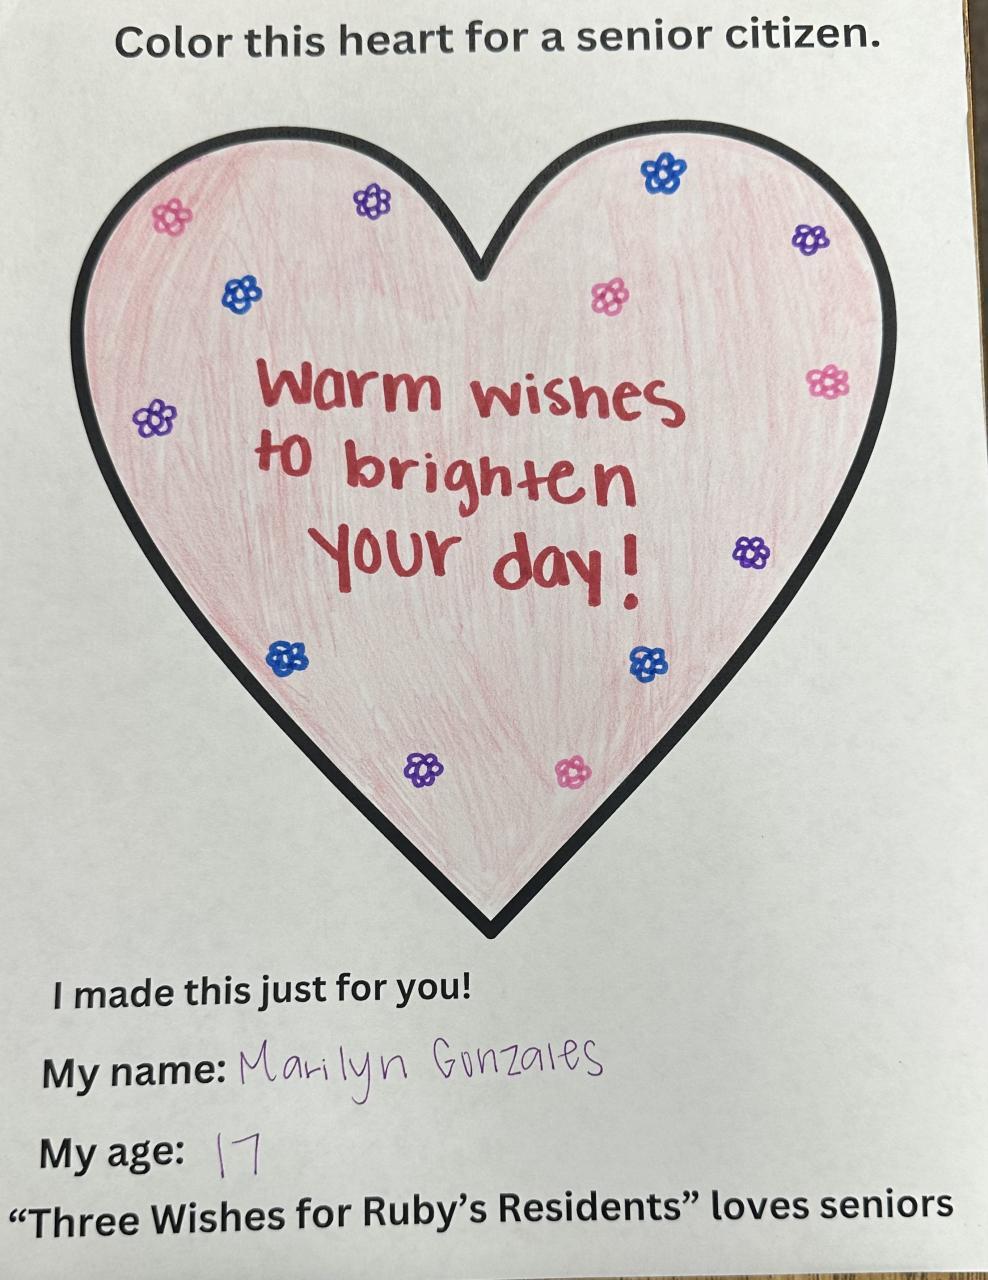 Color this heart for a senior citizen.
Warm wishes
to brighten
your day!
I made this just for you!
My name: Marilyn Gonzales
My age: 17
“Three Wishes for Ruby’s Residents” loves seniors